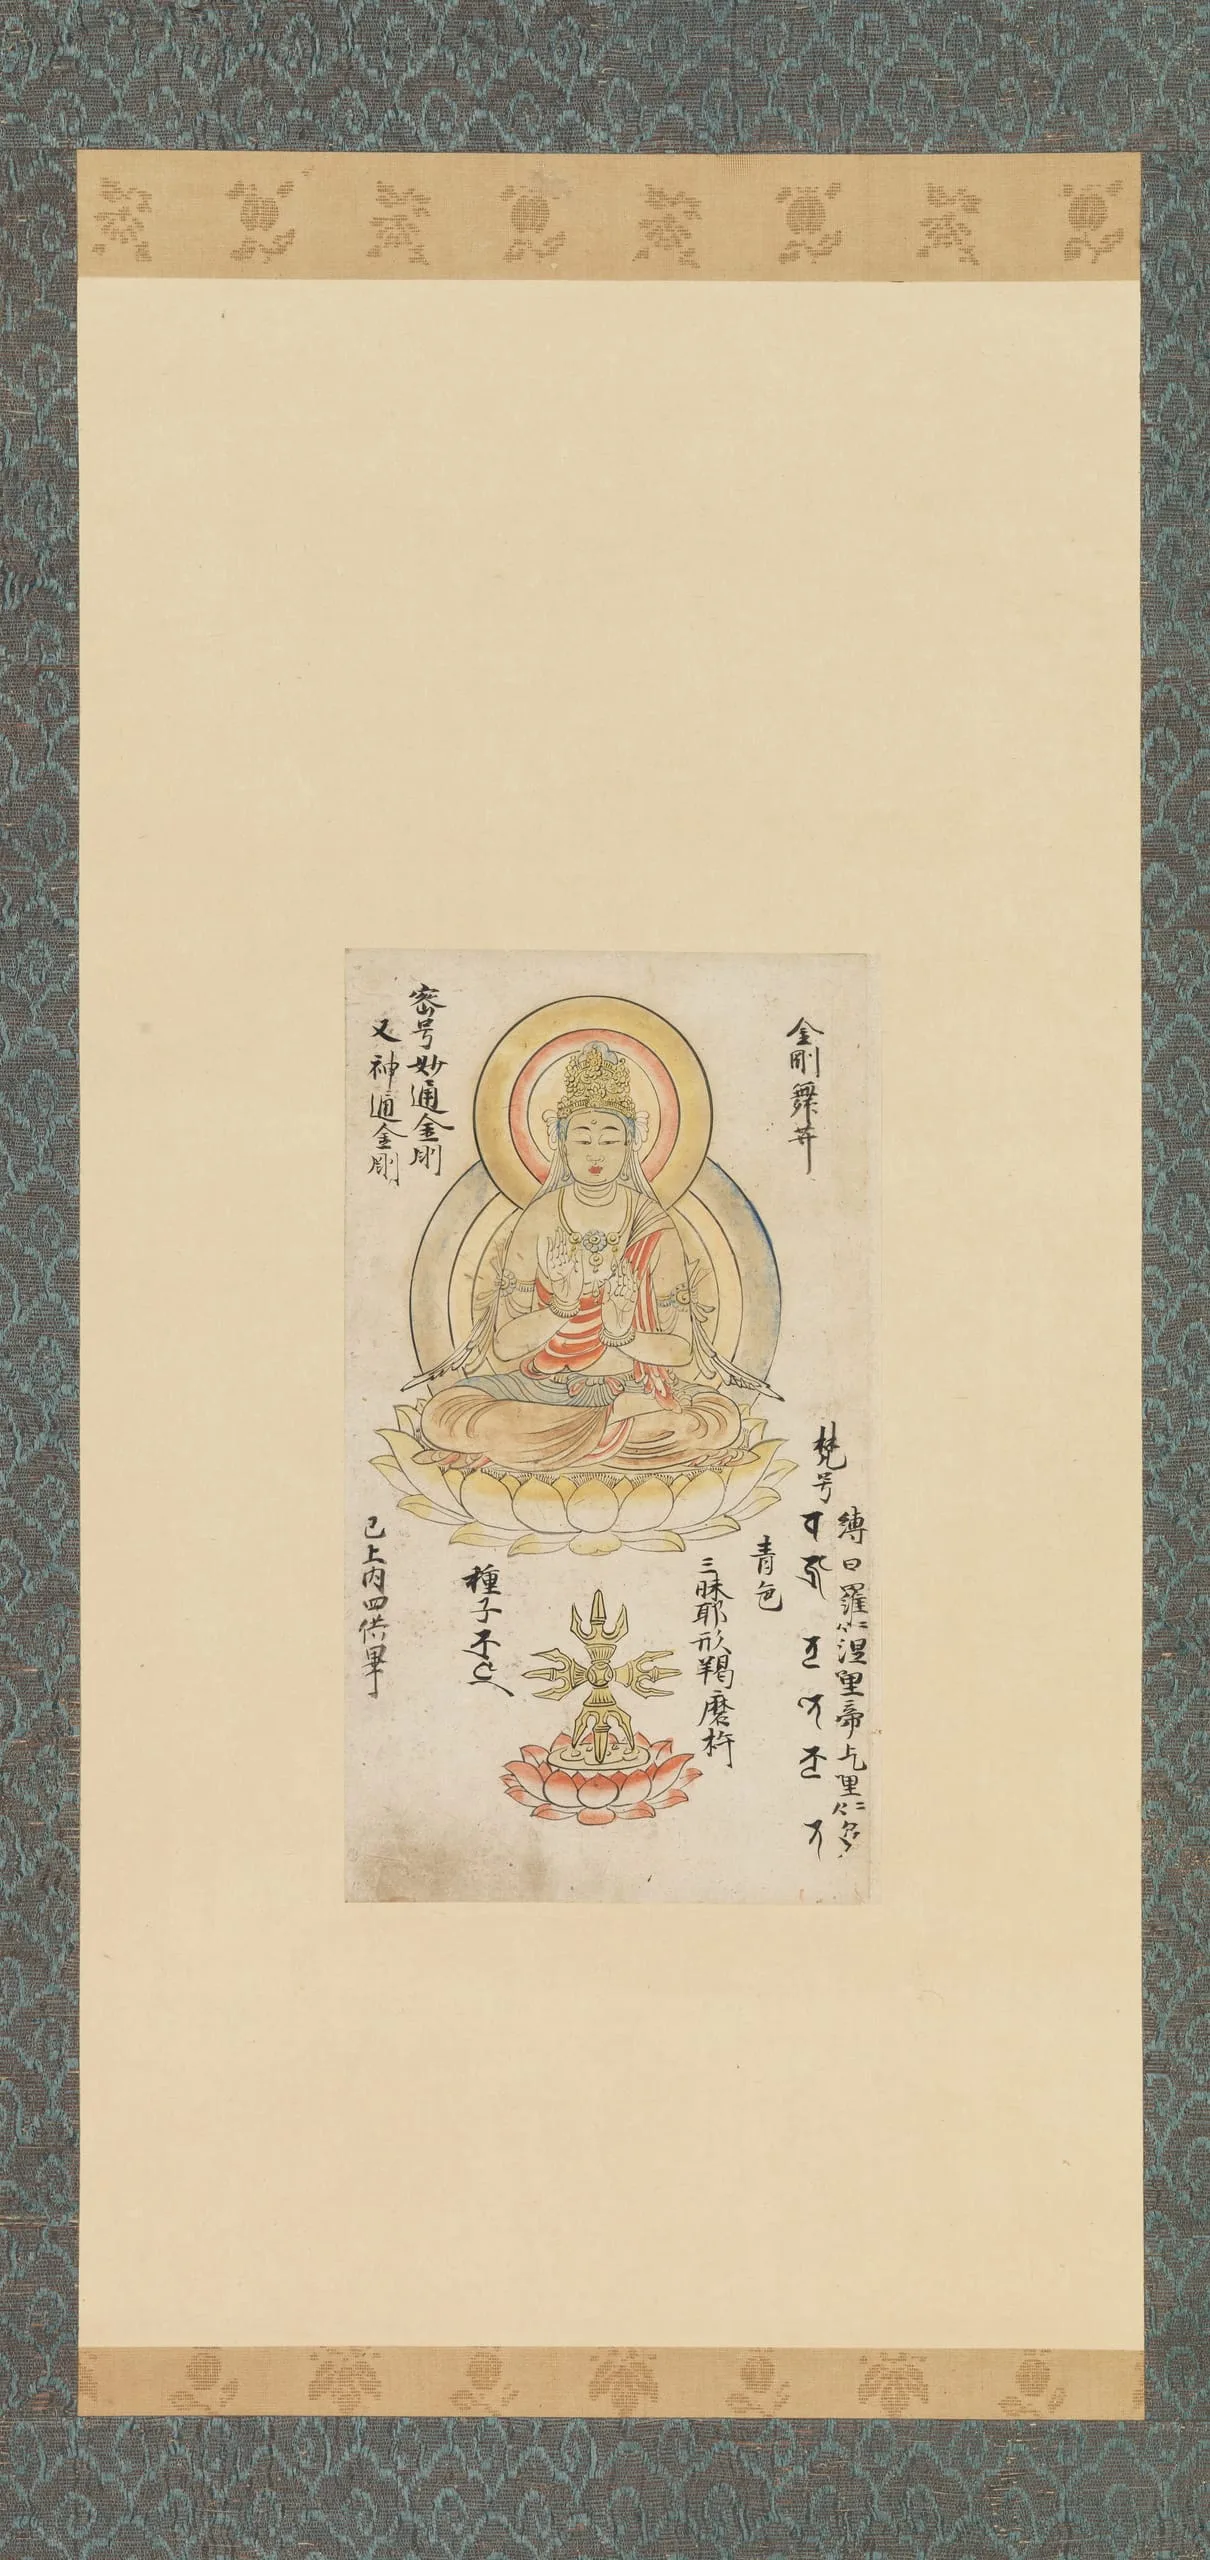 金剛舞菩
梵号
縛曰羅二合涅哩帝上哩二合多
青色
三昧耶形羯磨杵
種子
密号妙通金剛
又神通金剛
已上内四供畢